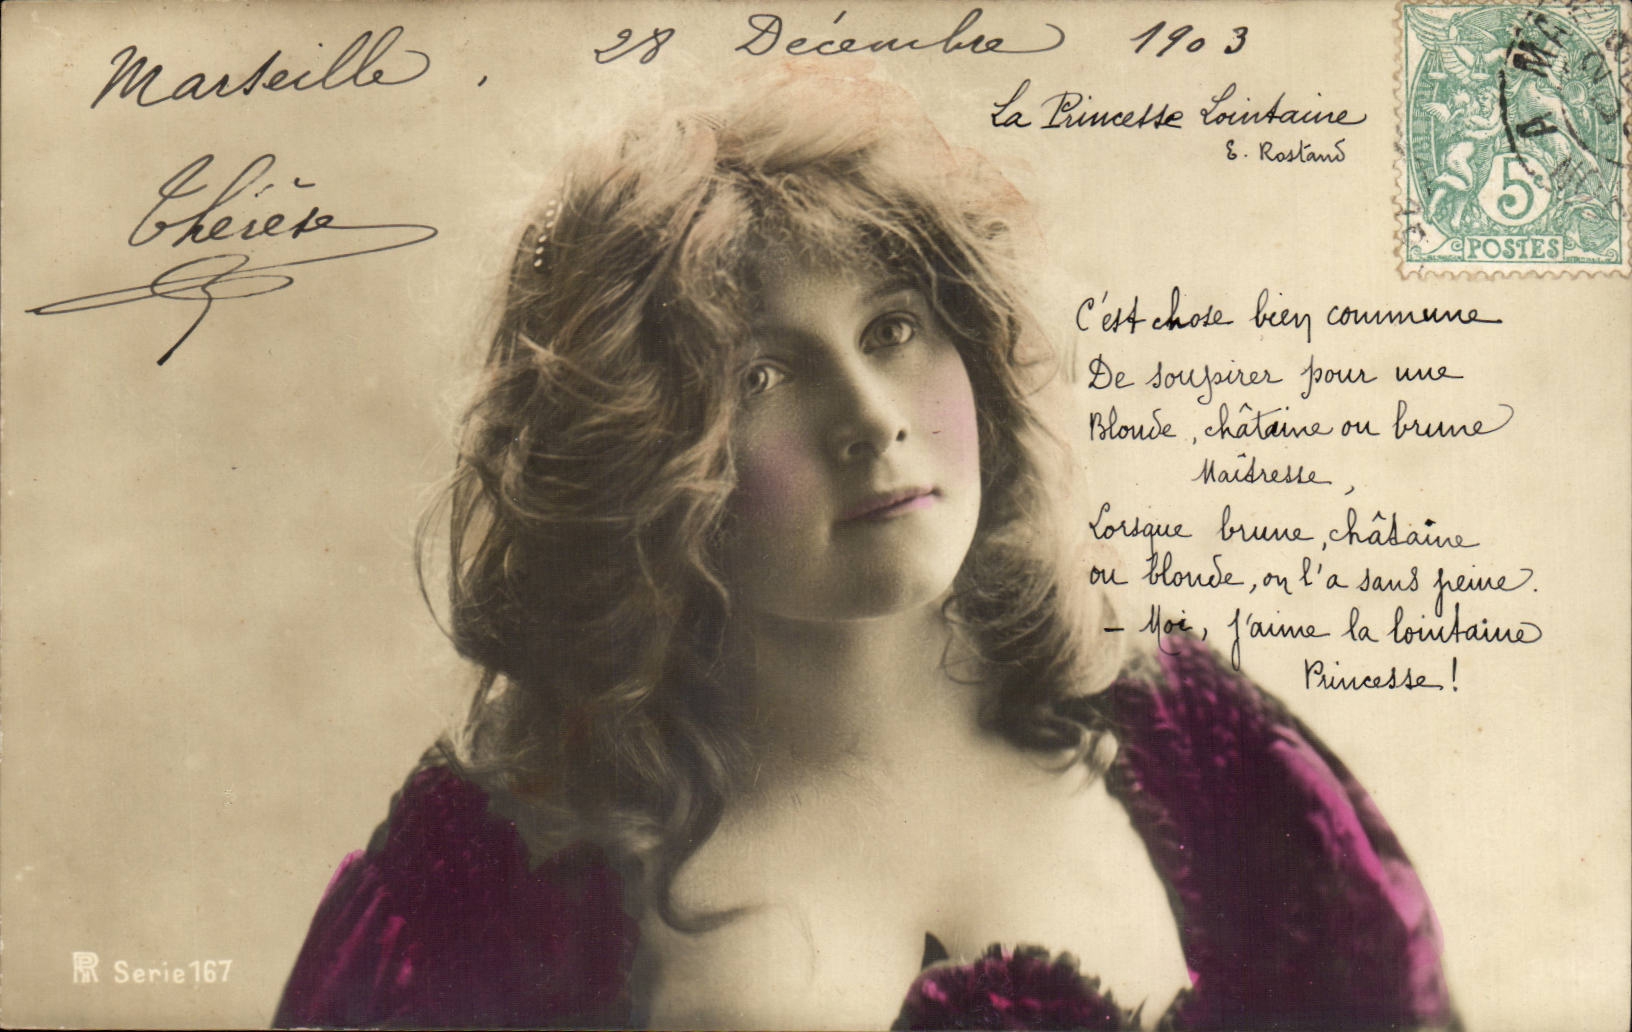 Marseille, 28 Décembre 1903
La Princesse Lointaine
E. Rostand
Thérèse
5
POSTES
C'est chose bien commune
De soupirer pour une
Blonde, châtaine ou brune
Maîtresse,
Lorsque brune, châtaine
ou blonde, on l'a sans peine.
- Moi, j'aime la lointaine
Princesse!
Serie 167